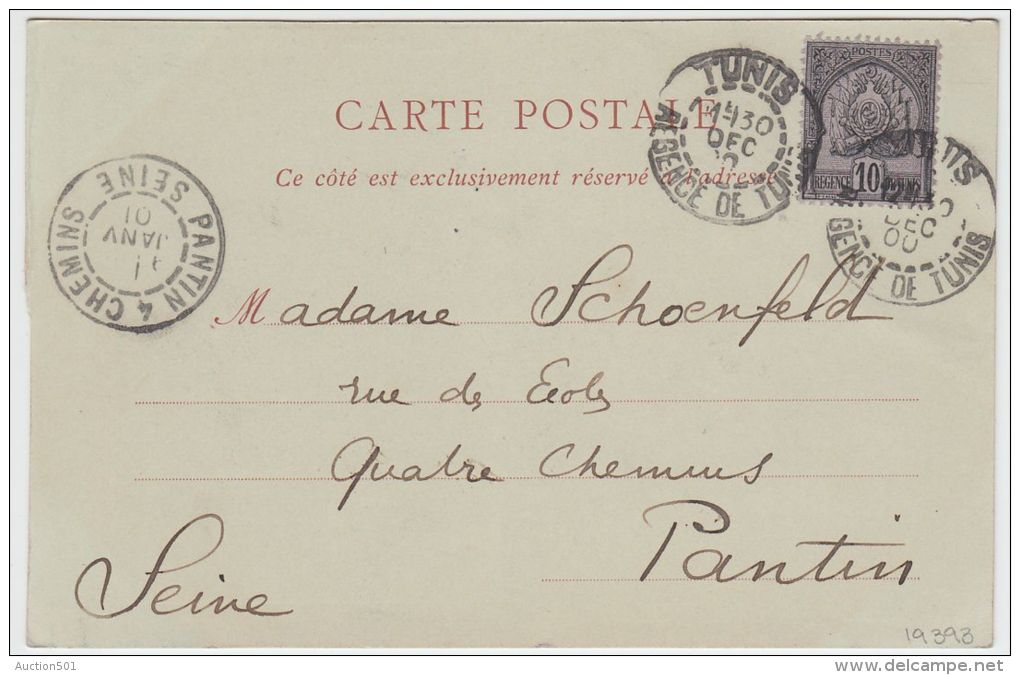 CARTE POSTALE
Ce côté est exclusivement réservé à l'adresse
TUNIS
30
DEC
REGENCE DE TUNIS
POSTES
REGENCE 10 DE TUNIS
TUNIS
DEC
00
REGENCE DE TUNIS
PANTIN 4 CHEMINS
SEINE
1
JANV
01
Madame Schoenfeld
rue des Ecoles
Quatre Chemins
Pantin
Seine
19393
Auction501
www.delcampe.net